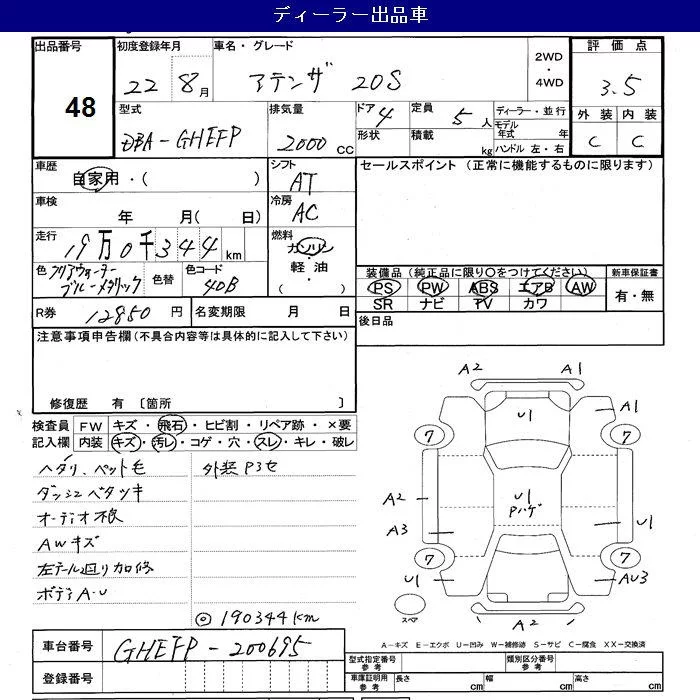 ディーラー出品車
出品番号 48
初度登録年月 22 8月
車名・グレード アテンザ 20S
2WD・4WD
評価点 3.5
外装 内装
C C
型式 DBA-GHEFP
排気量 2000 CC
ドア 4 定員 5人
形状 積載 kg
ディーラー・並行
モデル年式 年
ハンドル 左・右
車歴 自家用・( )
シフト AT
セールスポイント (正常に機能するものに限ります)
車検 年 月( 日)
冷房 AC
走行 19万0千344 km
燃料 ガソリン・軽油・( )
色 クリアウォーターブルーメタリック
色替
色コード 40B
装備品(純正品に限り〇をつけてください)
PS PW ABS エアB AW
SR ナビ TV カワ
新車保証書 有・無
R券 12850 円
名変期限 月 日
後日品
注意事項申告欄(不具合内容等は具体的に記入して下さい)
修復歴 有 〔箇所 〕
検査員記入欄
FW キズ・飛石・ヒビ割・リペア跡・×要
内装 キズ・汚レ・コゲ・穴・スレ・キレ・破レ
ヘタリ、ペット毛
外装P3セ
ダッシュベタツキ
オーディオ不良
AWキズ
左テール廻り加修
ボディA・U
◎190344km
A2 A1
U1 A1
7 7
A2 U1 Pハゲ
A3 U1
7 7
U1 AU3
スペア
A2
A-キズ E-エクボ U-凹み W-補修跡 S-サビ C-腐食 XX-交換済
車台番号 GHEFP-200695
登録番号
型式指定番号 参考
類別区分番号 参考
車庫証明用 参考 長さ cm 幅 cm 高さ cm